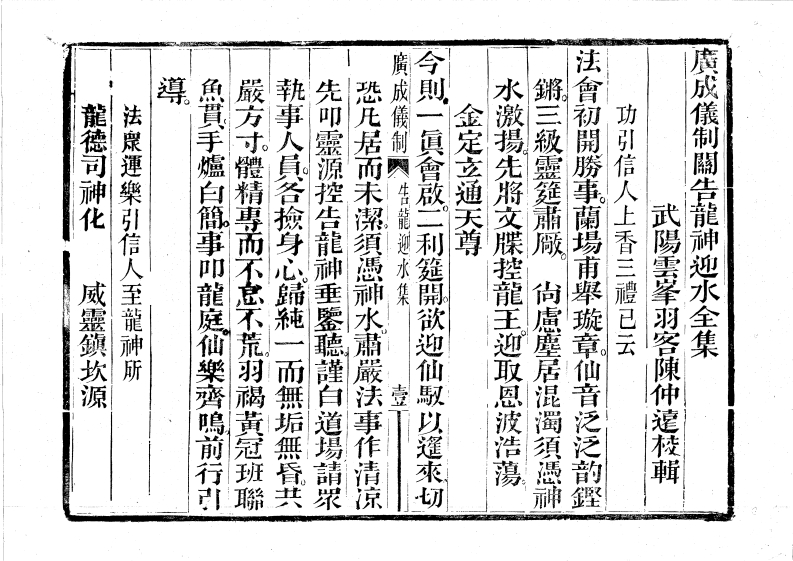 廣成儀制關告龍神迎水全集
武陽雲峯羽客陳仲遠校輯
功引信人上香三禮已云
法會初開勝事。蘭場甫舉璇章。仙音泛泛韵鏗
鏘。三級靈筵肅厰。尙慮塵居混濁須憑神
水激揚。先將文牒控龍王。迎取恩波浩蕩。
金定立通天尊
今則。一眞會啟。二利筵開。欲迎仙馭以遙來。切
廣成儀制 告龍迎水集 壹
恐凡居而未潔。須憑神水。肅嚴法事作清凉
先叩靈源控告龍神垂鑒聽。謹白道場請眾
執事人員。各撿身心。歸純一而無垢無昏。共
嚴方寸。體精專而不怠不荒。羽褐黃冠班聯
魚貫。手爐白簡。事叩龍庭。仙樂齊鳴。前行引
導。
法眾運樂引信人至龍神所
龍德司神化 威靈鎮坎源